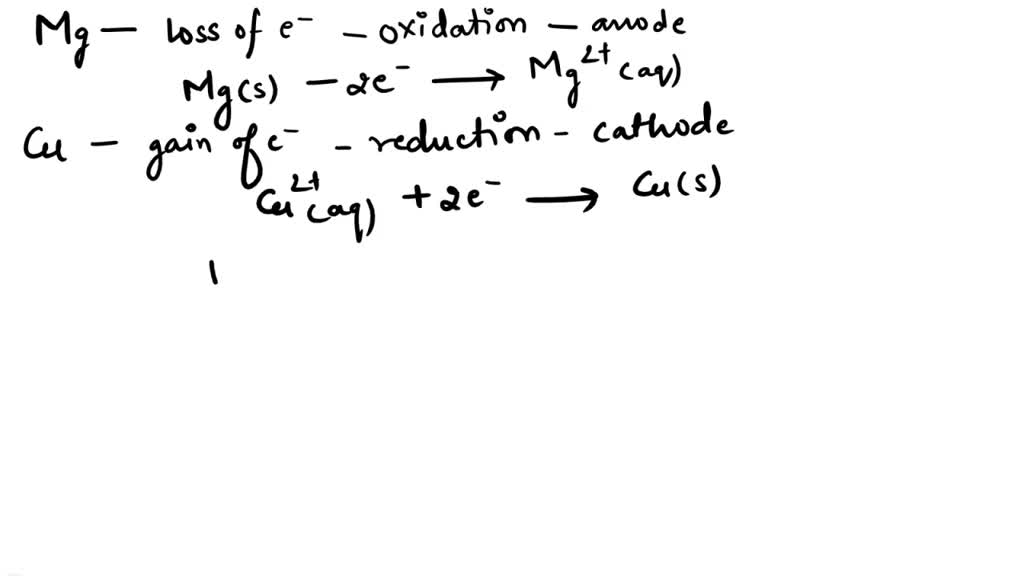 Mg — loss of e⁻ – oxidation – anode
Mg(s) – 2e⁻ ⟶ Mg²⁺(aq)
Cu – gain of e⁻ – reduction – cathode
Cu²⁺(aq) + 2e⁻ ⟶ Cu(s)